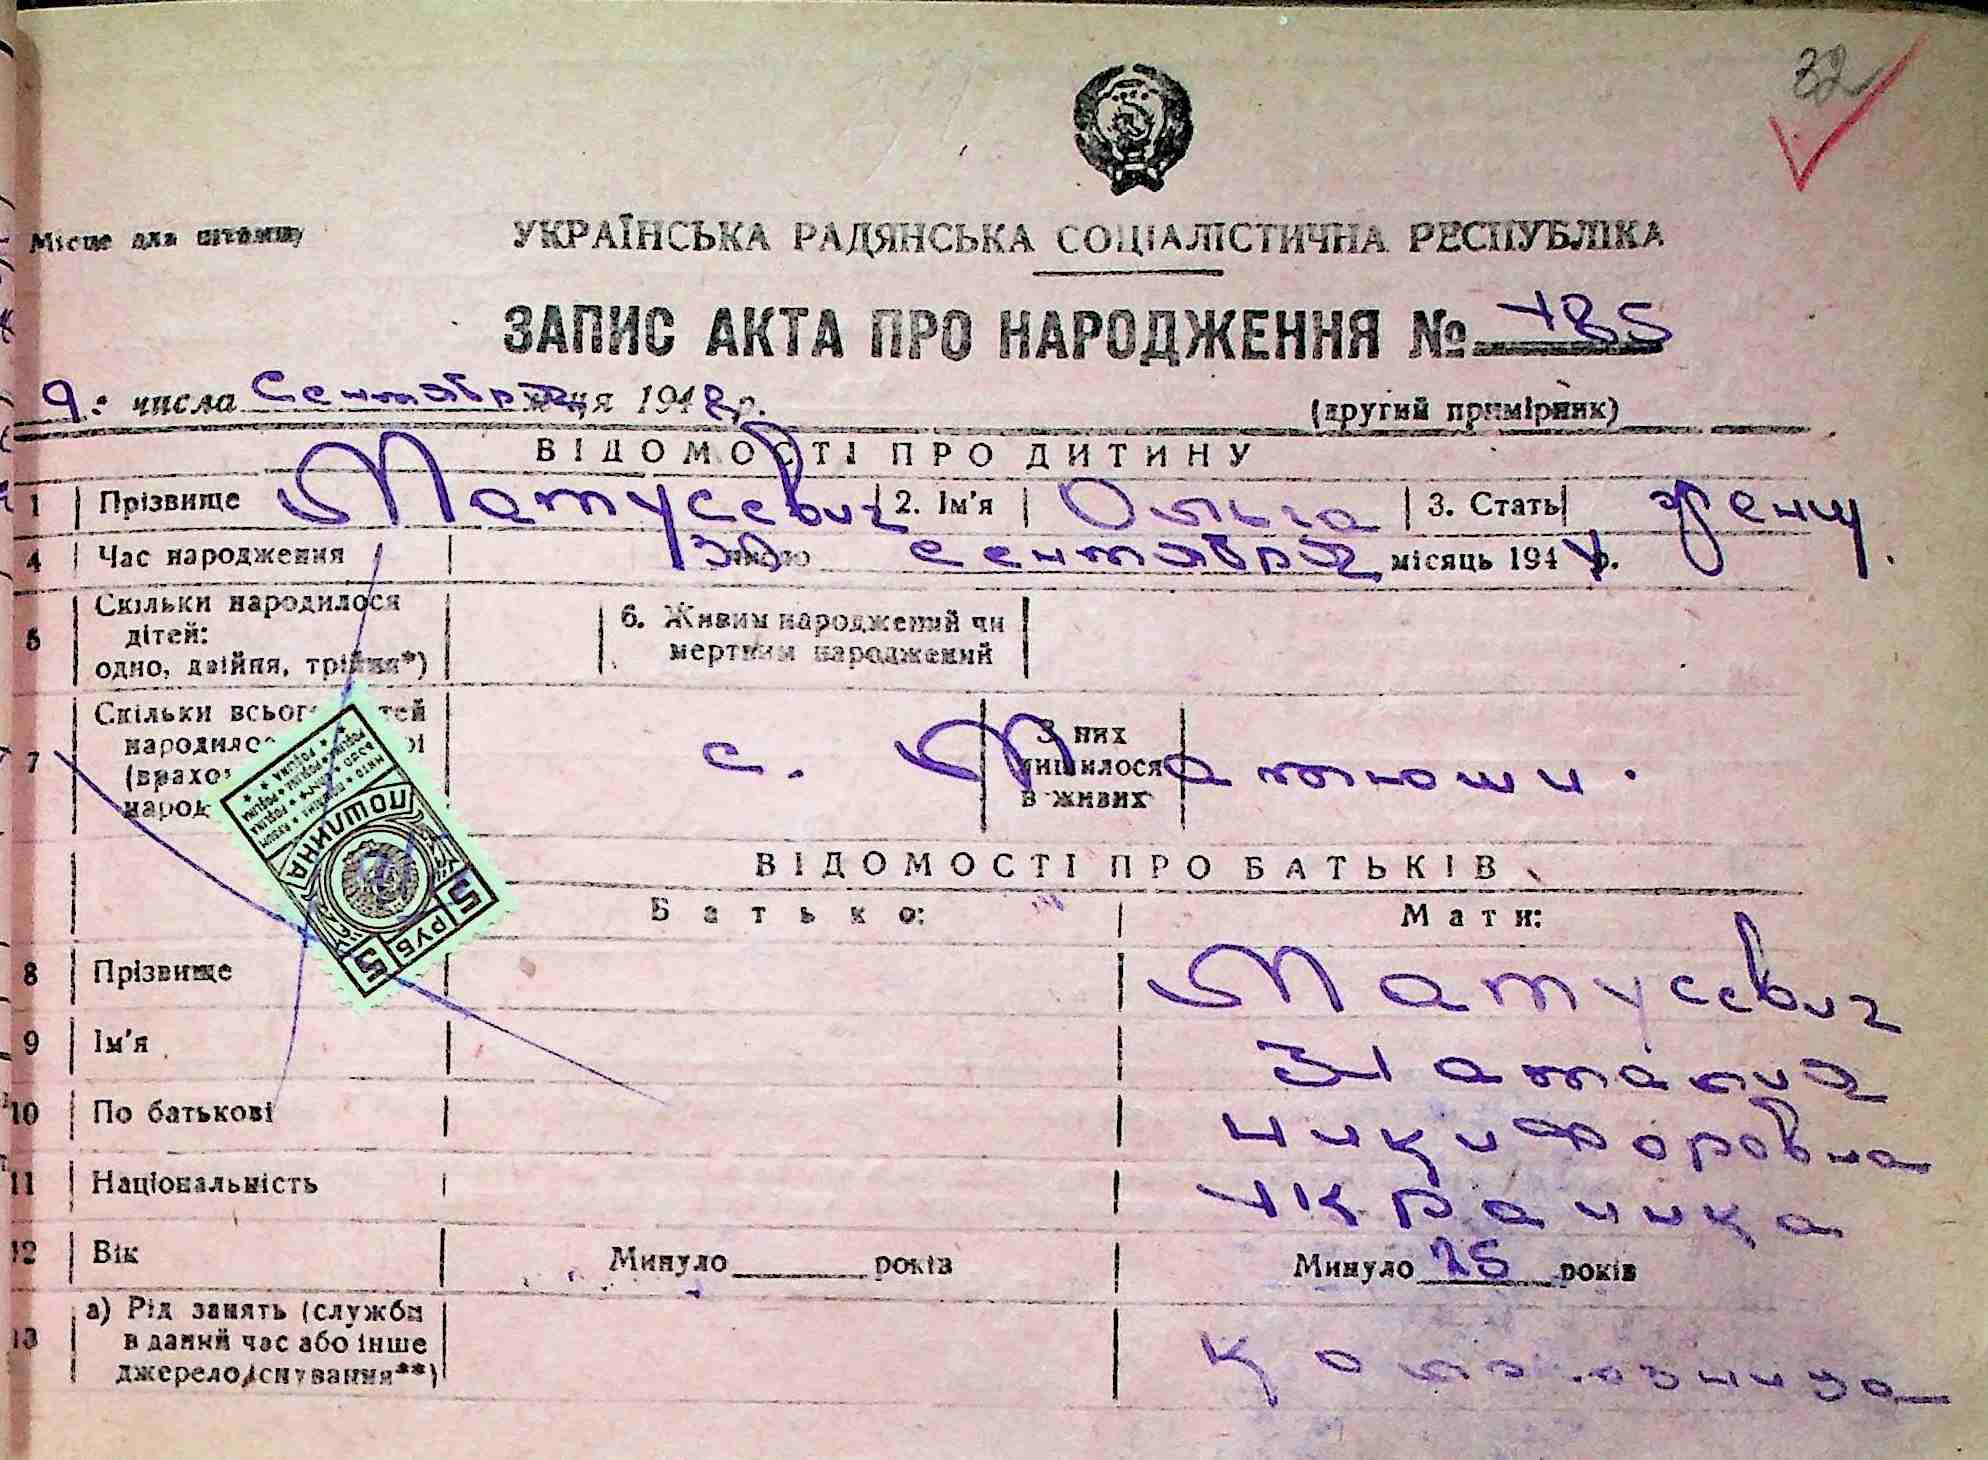 32
Місце для штампу
УКРАЇНСЬКА РАДЯНСЬКА СОЦІАЛІСТИЧНА РЕСПУБЛІКА
ЗАПИС АКТА ПРО НАРОДЖЕННЯ № 185
9. числа Сентября м-ця 1948 р.
(другий примірник)
ВІДОМОСТІ ПРО ДИТИНУ
1 Прізвище Матусевич 2. Ім'я Ольга 3. Стать женщ.
4 Час народження 30 числа сентября місяць 1944 р.
5 Скільки народилося дітей: одно, двійня, трійня*)
6. Живим народжений чи мертвим народжений
7 Скільки всього дітей
народилос
(врахо
народ
З них лишилося в живих
с. Матюши.
МИТО
ПОШЛИНА
5 РУБ 5
ВІДОМОСТІ ПРО БАТЬКІВ
Батько: Мати:
8 Прізвище Матусевич
9 Ім'я Наталия
10 По батькові Никифоровна
11 Національність Украинка
12 Вік Минуло років Минуло 25 років
13 а) Рід занять (служби в даний час або інше джерело існування**) колхозница